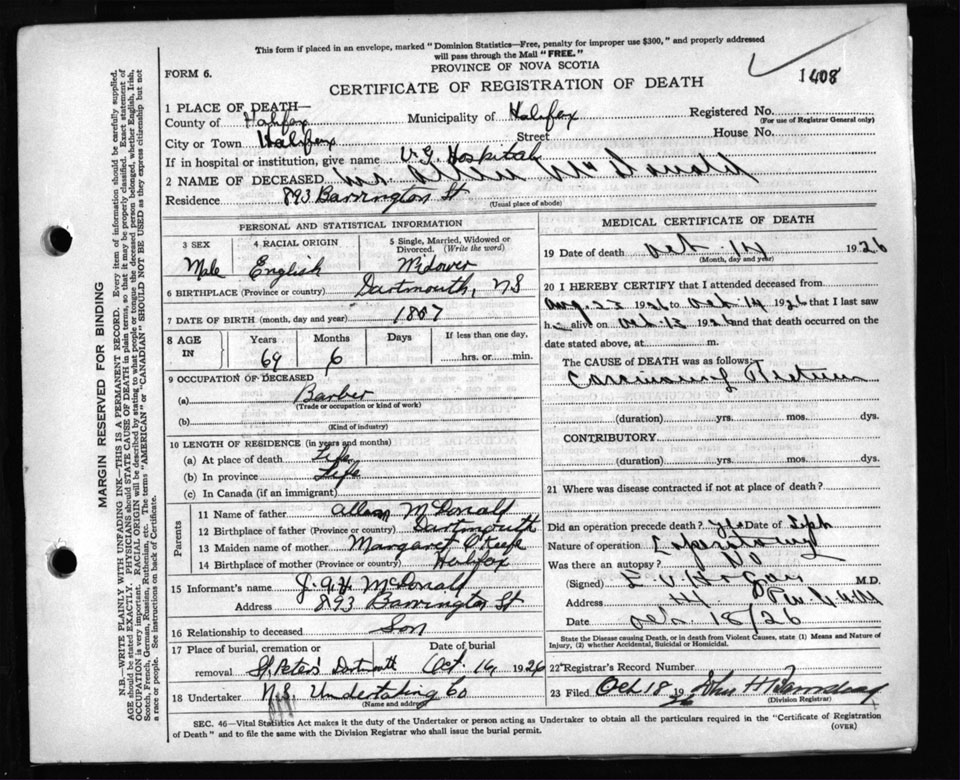 This form if placed in an envelope, marked "Dominion Statistics—Free, penalty for improper use $300," and properly addressed
will pass through the Mail "FREE."
PROVINCE OF NOVA SCOTIA
FORM 6.
CERTIFICATE OF REGISTRATION OF DEATH
1408
1 PLACE OF DEATH—
County of Halifax Municipality of Halifax Registered No.
(For use of Registrar General only)
City or Town Halifax Street House No.
If in hospital or institution, give name V.G. Hospital
2 NAME OF DECEASED Mr Allen McDonald
Residence 893 Barrington St
(Usual place of abode)
PERSONAL AND STATISTICAL INFORMATION
3 SEX 4 RACIAL ORIGIN 5 Single, Married, Widowed or Divorced. (Write the word)
Male English Widower
6 BIRTHPLACE (Province or country) Dartmouth, NS
7 DATE OF BIRTH (month, day and year) 1857
8 AGE IN Years Months Days If less than one day,
69 6 hrs. or min.
9 OCCUPATION OF DECEASED
(a) Barber
(Trade or occupation or kind of work)
(b)
(Kind of industry)
10 LENGTH OF RESIDENCE (in years and months)
(a) At place of death Life
(b) In province Life
(c) In Canada (if an immigrant)
Parents
11 Name of father Allan McDonald
12 Birthplace of father (Province or country) Dartmouth
13 Maiden name of mother Margaret O'Keefe
14 Birthplace of mother (Province or country) Halifax
15 Informant's name McDonald
Address 893 Barrington St
16 Relationship to deceased Son
17 Place of burial, cremation or removal Date of burial
St. Peters Dartmouth Oct. 16, 1926
18 Undertaker N.S. Undertaking Co
(Name and address)
MEDICAL CERTIFICATE OF DEATH
19 Date of death Oct. 14 1926
(Month, day and year)
20 I HEREBY CERTIFY that I attended deceased from
Aug 23 1926 to Oct 14 1926 that I last saw
h alive on Oct 13 1926 and that death occurred on
date stated above, at m.
The CAUSE of DEATH was as follows:
Carcinoma of Rectum
(duration) yrs. mos. dys.
CONTRIBUTORY
(duration) yrs. mos. dys.
21 Where was disease contracted if not at place of death?
Did an operation precede death? yes Date of Sept
Nature of operation
Was there an autopsy? No
(Signed) M.D.
Address
Date Oct. 18/26
State the Disease causing Death, or in death from Violent Causes, state (1) Means and Nature of
Injury, (2) whether Accidental, Suicidal or Homicidal.
22 Registrar's Record Number
23 Filed Oct 18 1926 John H
(Division Registrar)
SEC. 46—Vital Statistics Act makes it the duty of the Undertaker or person acting as Undertaker to obtain all the particulars required in the "Certificate of Registration
of Death" and to file the same with the Division Registrar who shall issue the burial permit.
(OVER)
MARGIN RESERVED FOR BINDING
N.B.—WRITE PLAINLY WITH UNFADING INK—THIS IS A PERMANENT RECORD. Every item of information should be carefully supplied.
AGE should be stated EXACTLY. PHYSICIANS should STATE CAUSE OF DEATH in plain terms, so that it may be properly classified. Exact statement of
OCCUPATION is very important. RACIAL ORIGIN will be described by stating to what people or tongue the deceased person belonged, whether English, Irish,
Scotch, French, German, Russian, Ruthenian, etc. The terms "AMERICAN" or "CANADIAN" SHOULD NOT BE USED as they express citizenship but not
a race or people. See instructions on back of Certificate.